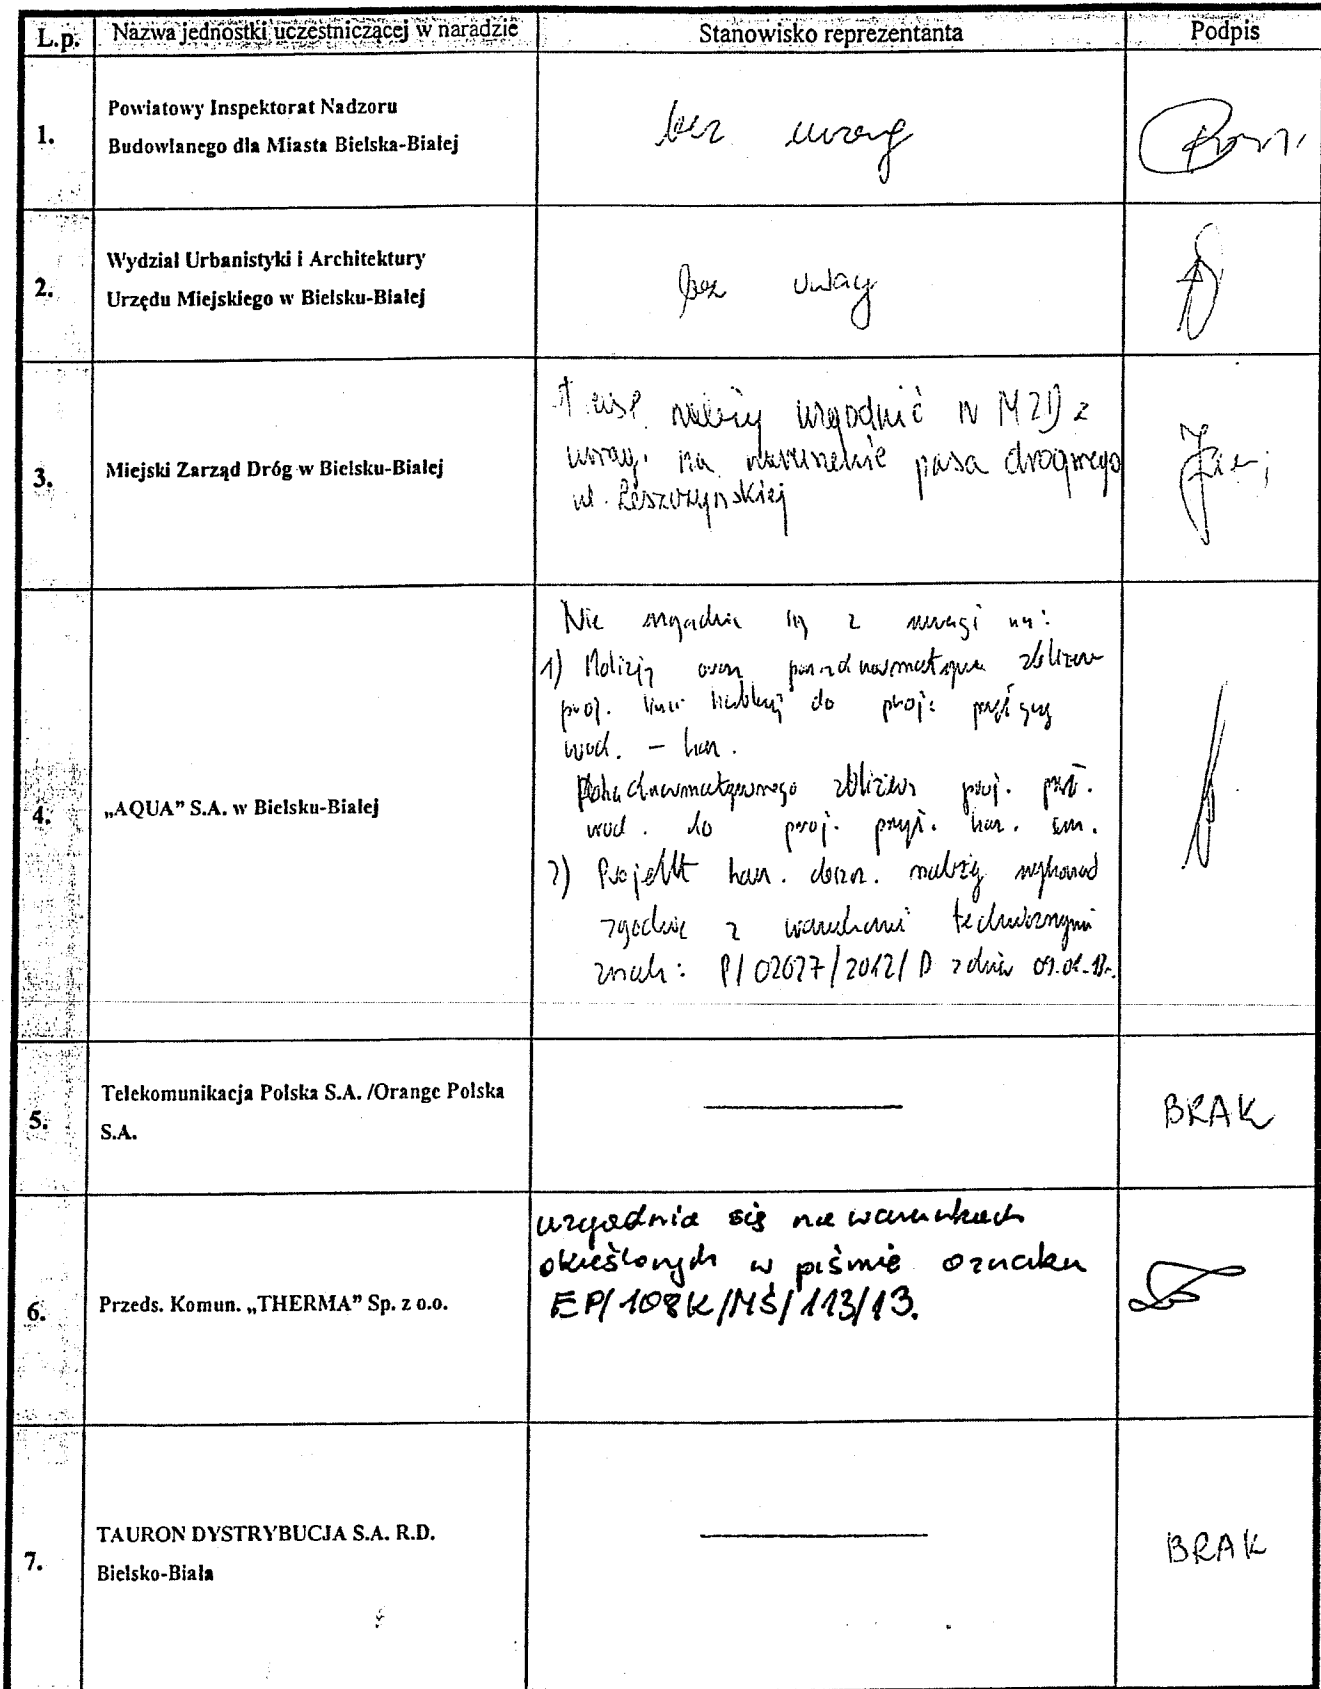 L.p. Nazwa jednostki uczestniczącej w naradzie Stanowisko reprezentanta Podpis
1. Powiatowy Inspektorat Nadzoru
Budowlanego dla Miasta Bielska-Białej
bez uwag
2. Wydział Urbanistyki i Architektury
Urzędu Miejskiego w Bielsku-Białej
bez uwag
3. Miejski Zarząd Dróg w Bielsku-Białej
należy uzgodnić w MZD z
uwagi na naruszenie pasa drogowego
ul. Leszczyńskiej
4. „AQUA” S.A. w Bielsku-Białej
Nie uzgadnia się z uwagi na:
1) Kolizję oraz zbliżenie
proj. linii do proj. przyłączy
wod. - kan.
zbliżenia proj. przył.
wod. do proj. przył. kan. san.
2) Projekt kan. deszcz. należy wykonać
zgodnie z warunkami technicznymi
znak: P/02677/2012/D z dnia
5. Telekomunikacja Polska S.A. /Orange Polska
S.A.
BRAK
6. Przeds. Komun. „THERMA” Sp. z o.o.
uzgadnia się na warunkach
określonych w piśmie o znaku
EP/108K/MŚ/113/13.
7. TAURON DYSTRYBUCJA S.A. R.D.
Bielsko-Biała
BRAK